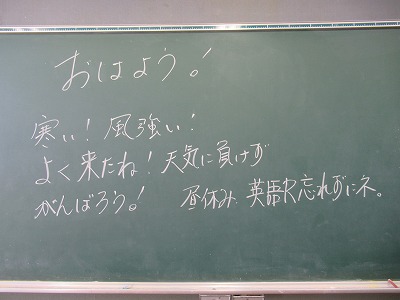 おはよう!
寒い! 風強い!
よく来たね! 天気に負けず
がんばろう! 昼休み 英語R忘れずにネ。